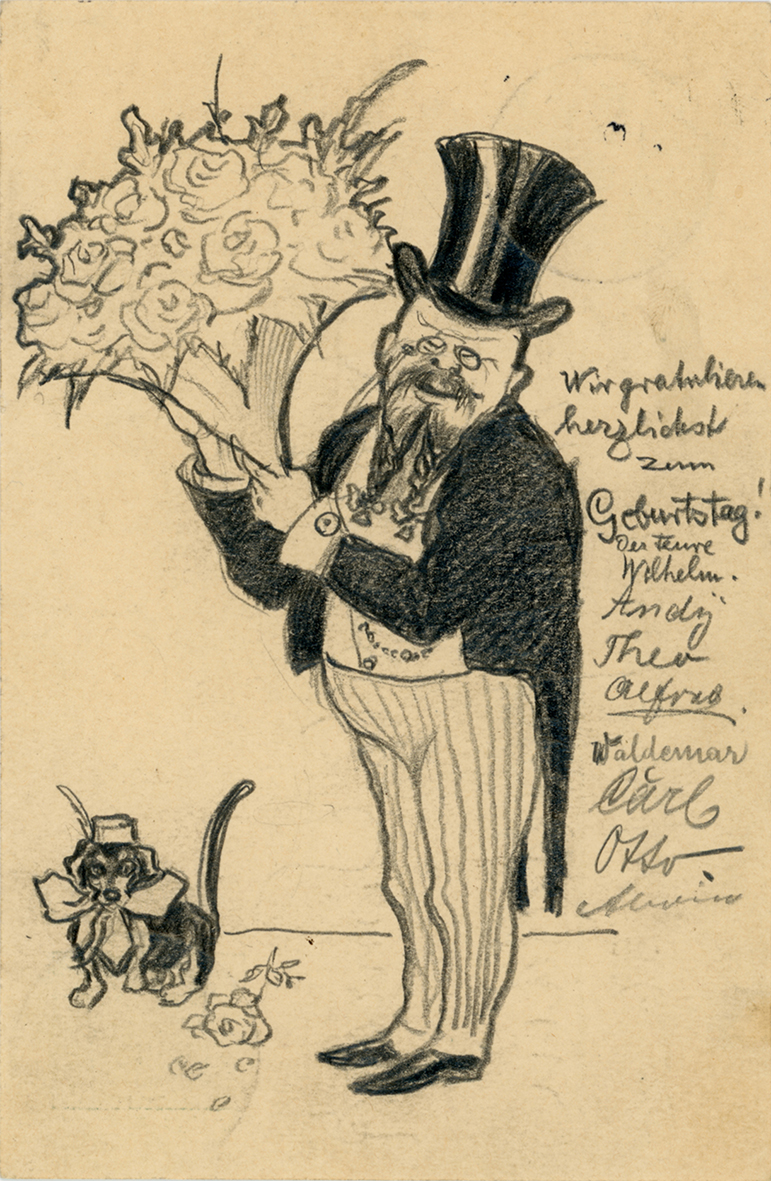 Wir gratulieren
herzlichst
zum
Geburtstag!
Der teure
Wilhelm.
Andy
Theo
Alfred.
Waldemar
Carl
Otto
Alwin